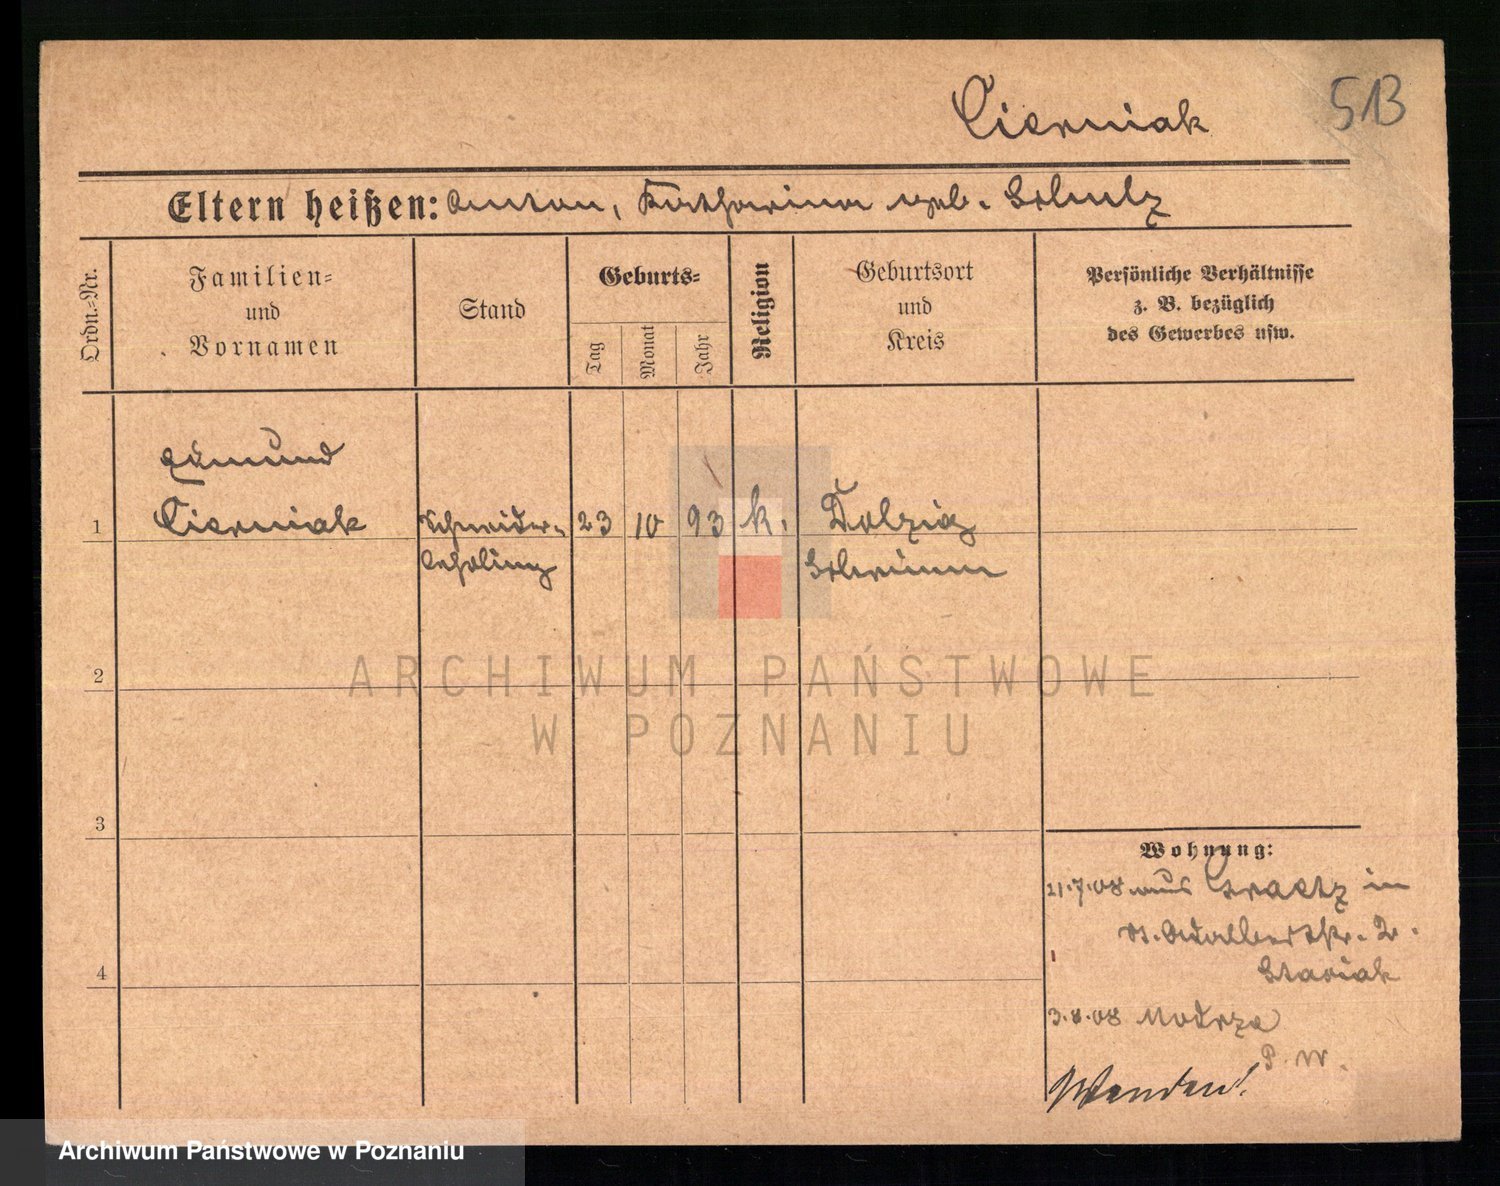 Cierniak
513
Eltern heißen: Anton, Katharina geb. Schulz
Ordn.-Nr.
Familien-
und
Vornamen
Stand
Geburts-
Tag
Monat
Jahr
Religion
Geburtsort
und
Kreis
Persönliche Verhältnisse
z. B. bezüglich
des Gewerbes usw.
Edmund
1 Cierniak Schneider- 23 10 93 k. Dolzig
lehrling Schrimm
2
3
4
Wohnung:
21.7.08 aus Graetz in
St. Adalbertstr. 2.
Staniak
3.8.08 Modrze
P. W.
Wenden!
ARCHIWUM PAŃSTWOWE
W POZNANIU
Archiwum Państwowe w Poznaniu